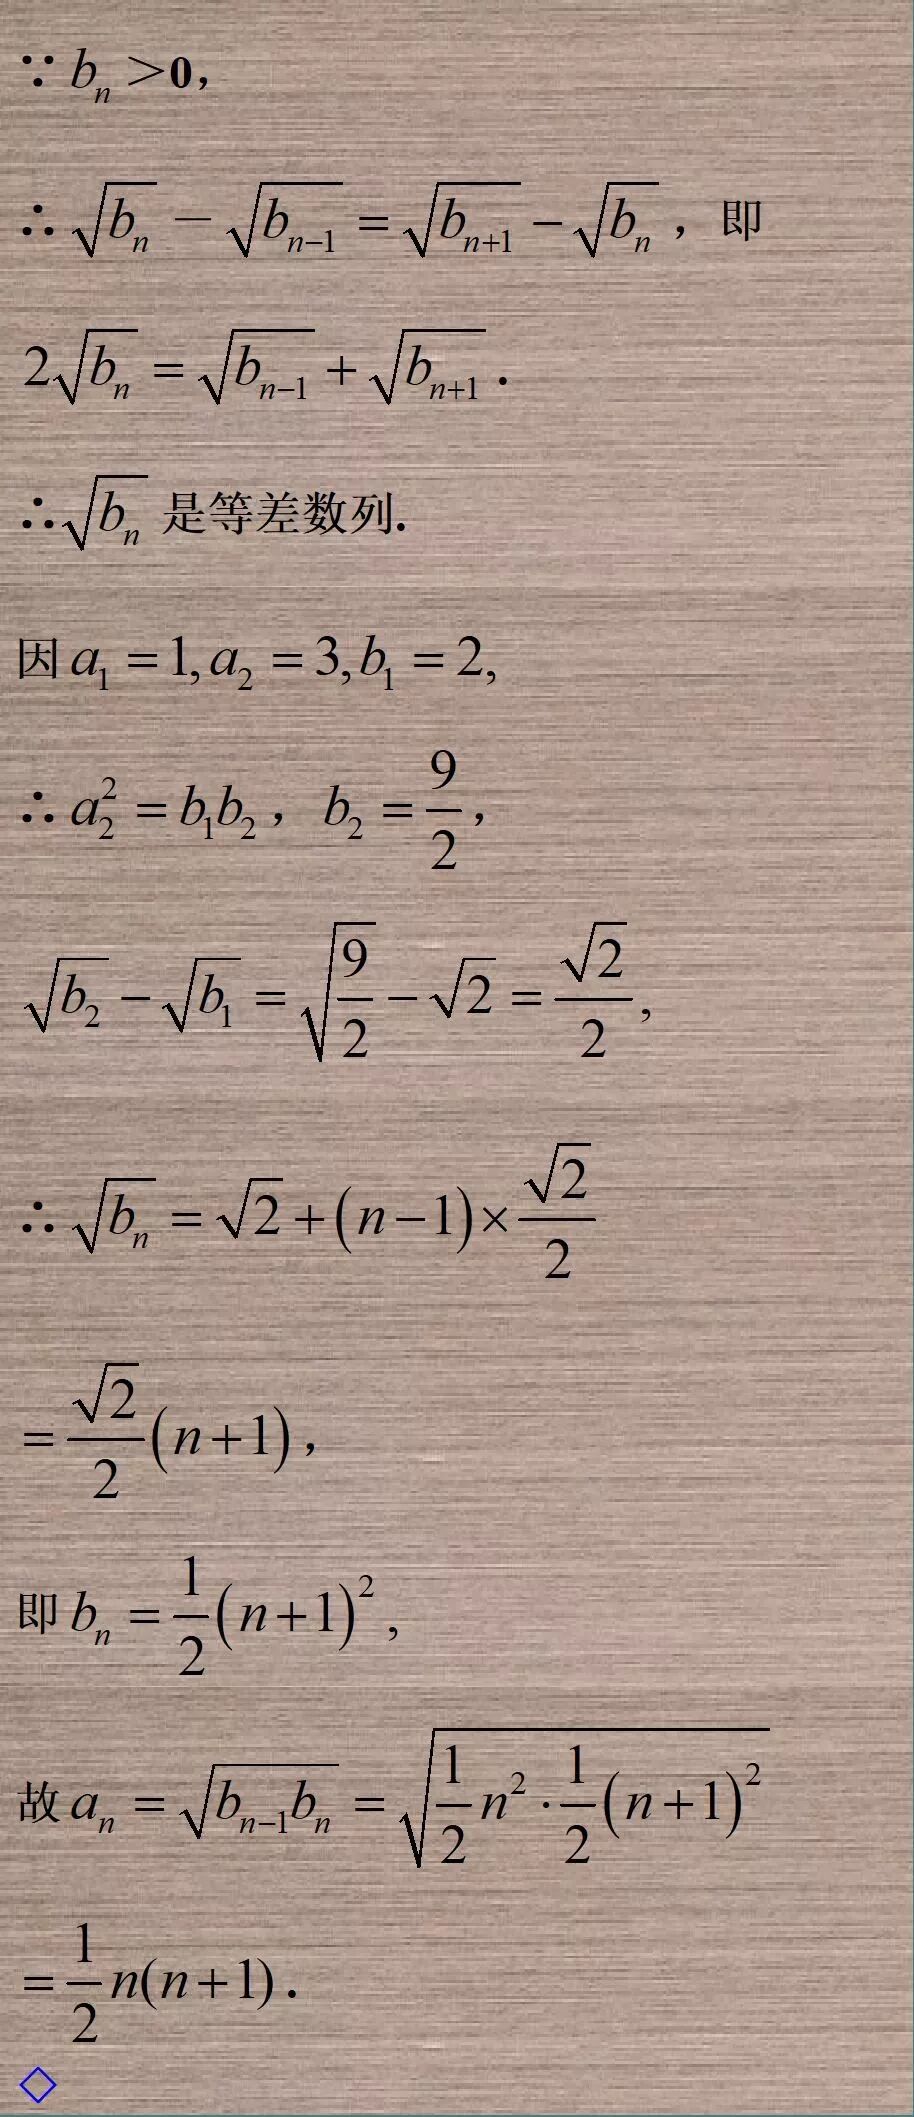 ∵ bₙ >0，
∴ √bₙ − √bₙ₋₁ = √bₙ₊₁ − √bₙ ，即
2√bₙ = √bₙ₋₁ + √bₙ₊₁ .
∴√bₙ 是等差数列.
因 a₁ = 1, a₂ = 3, b₁ = 2,
∴ a₂² = b₁b₂ ，b₂ = 9/2 ，
√b₂ − √b₁ = √(9/2) − √2 = √2/2 ,
∴ √bₙ = √2 + (n−1)× √2/2
= √2/2 (n+1)，
即 bₙ = 1/2 (n+1)² ,
故 aₙ = √(bₙ₋₁bₙ) = √(1/2 n² · 1/2 (n+1)²)
= 1/2 n(n+1) .